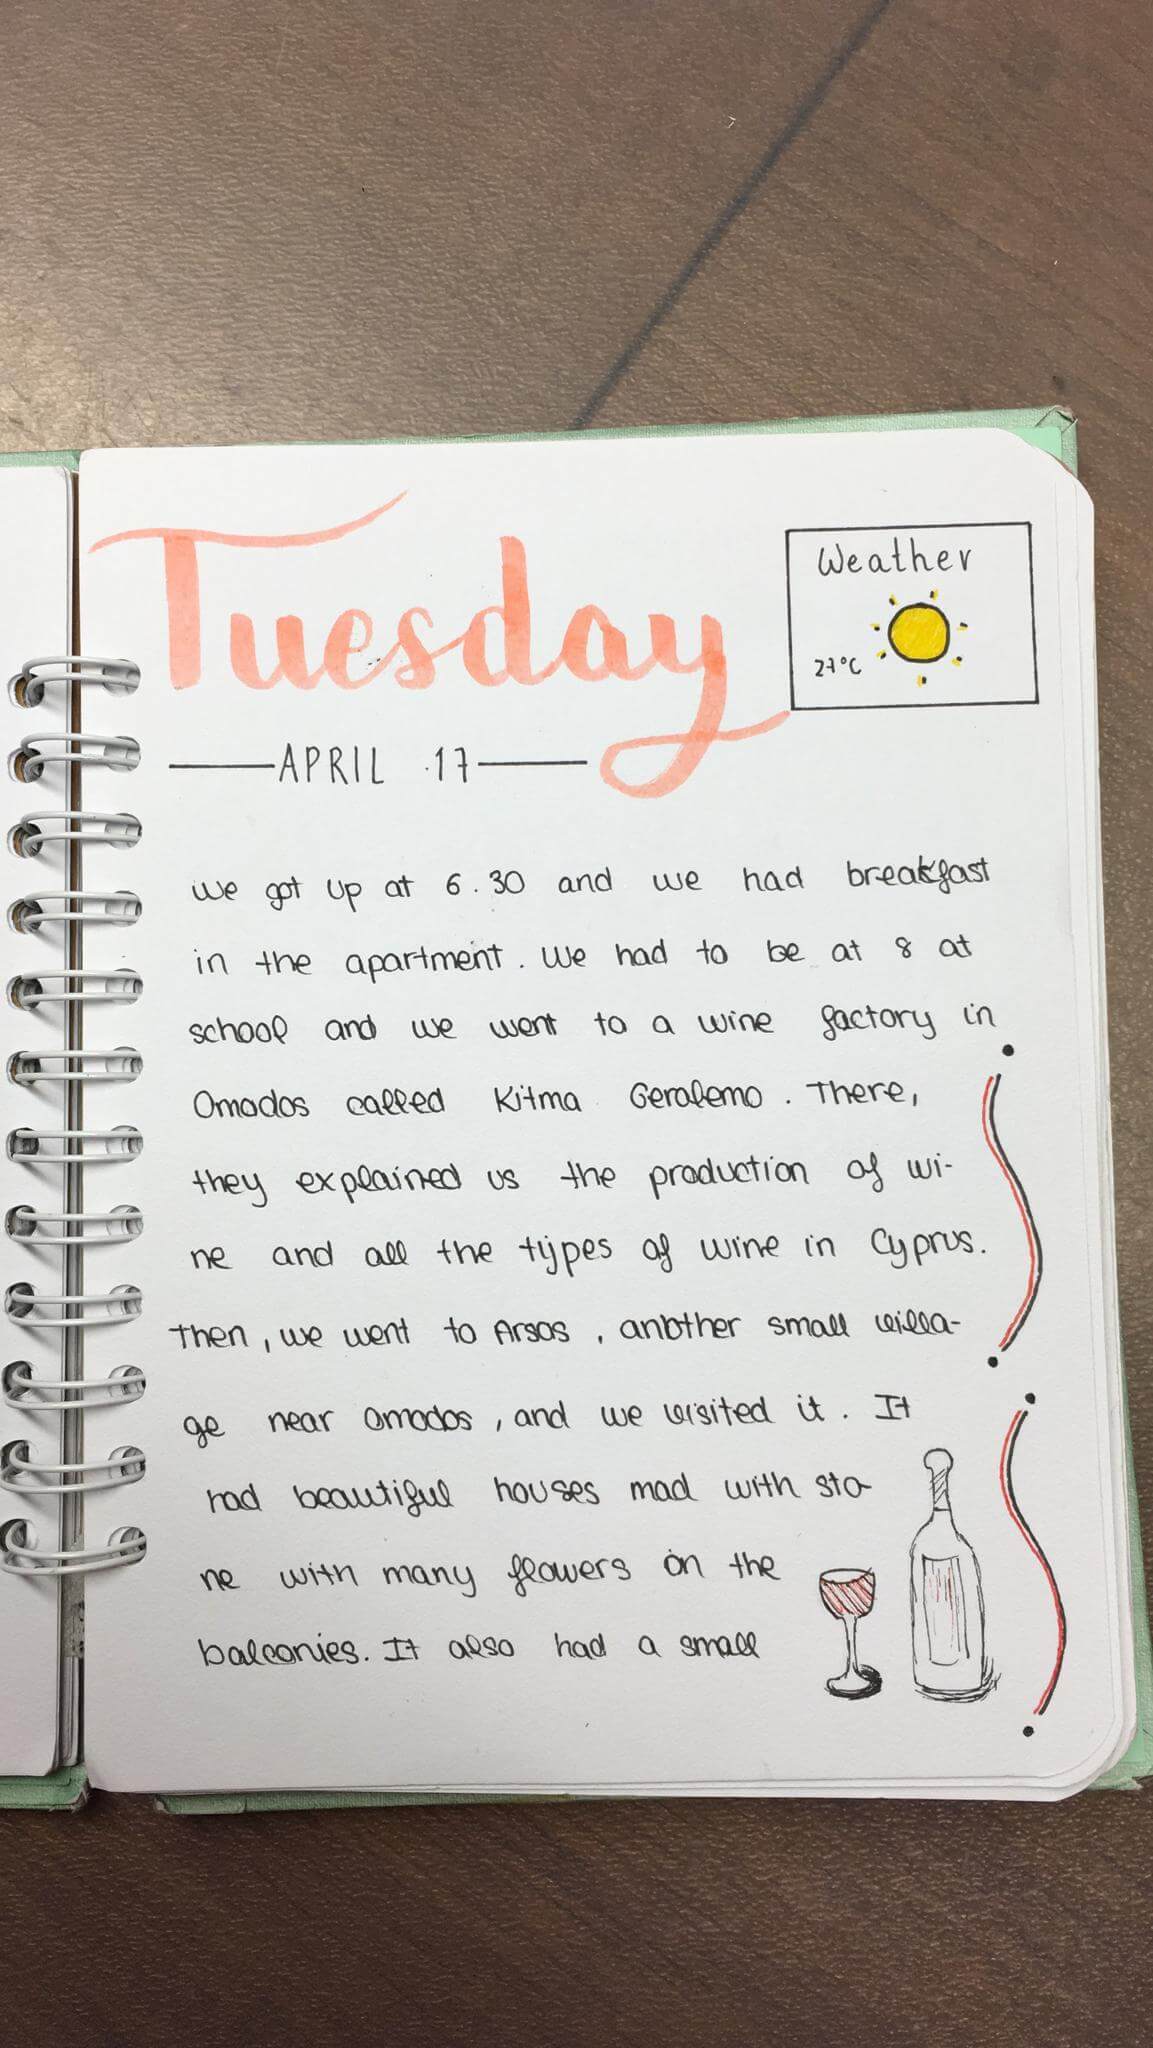 Tuesday
Weather
27°C
APRIL 17
We got up at 6.30 and we had breakfast
in the apartment. We had to be at 8 at
school and we went to a wine factory in
Omodos called Kitma Geralemo. There,
they explained us the production of wi-
ne and all the types of wine in Cyprus.
Then, we went to Arsos, another small villa-
ge near Omodos, and we visited it. It
had beautiful houses mad with sto-
ne with many flowers on the
balconies. It also had a small